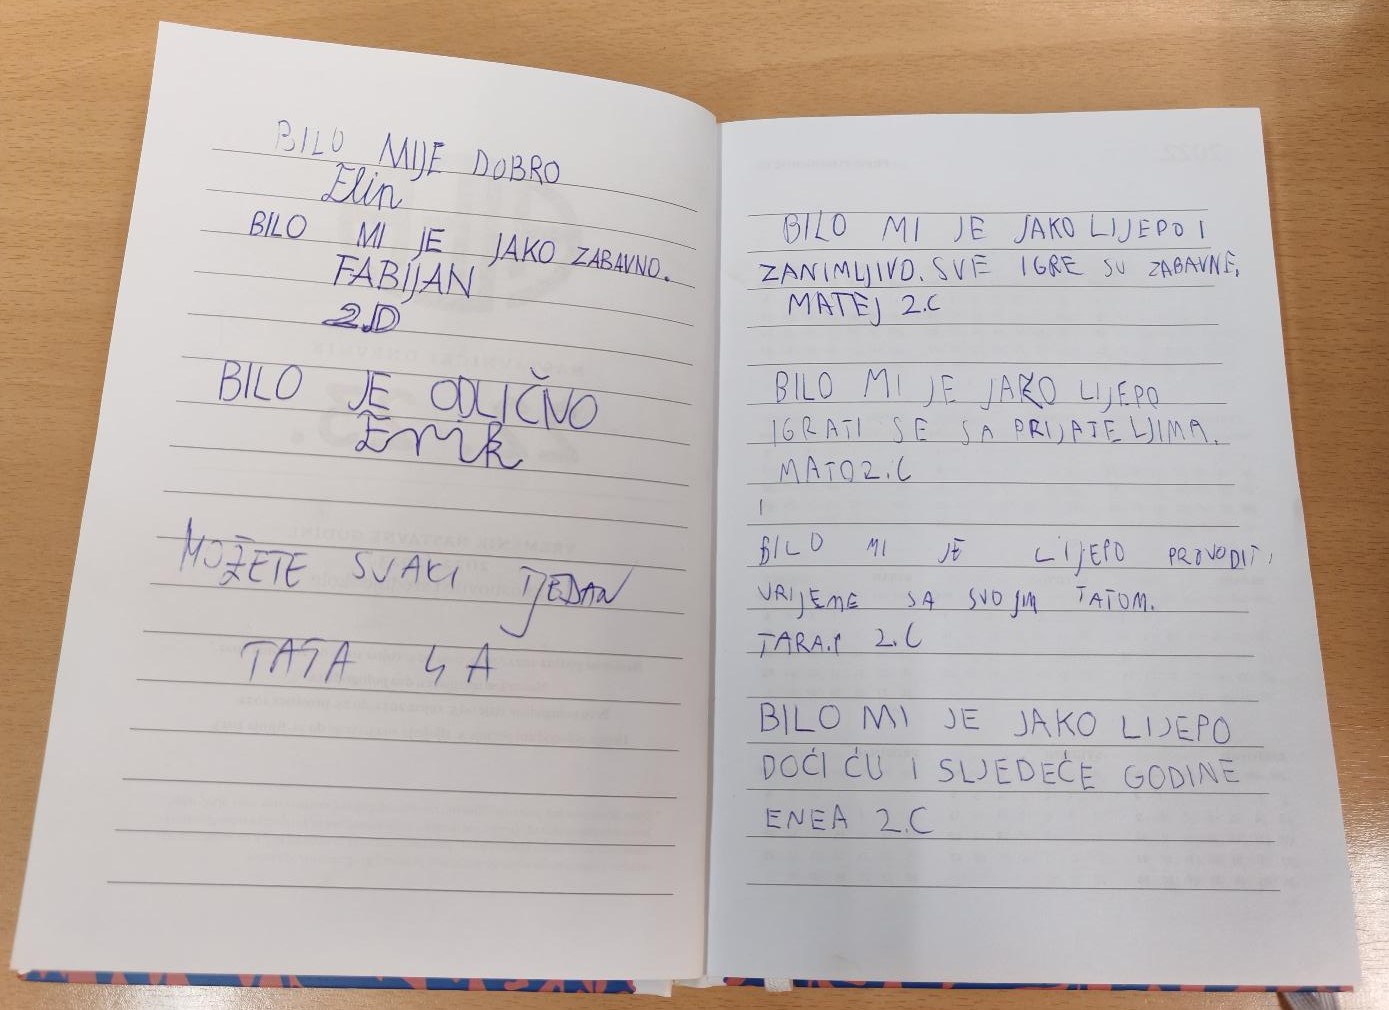 BILO MIJE DOBRO
Elin
BILO MI JE JAKO ZABAVNO.
FABIJAN
2.D
BILO JE ODLIČNO
Emik
MOŽETE SVAKI TJEDAN
TATA 4 A
BILO MI JE JAKO LIJEPO I
ZANIMLJIVO. SVE IGRE SU ZABAVNE.
MATEJ 2.C
BILO MI JE JAKO LIJEPO
IGRATI SE SA PRIJATELJIMA.
MATO 2.C
I
BILO MI JE LIJEPO PROVODIT,
VRIJEME SA SVOJIM TATOM.
TARA.P 2.C
BILO MI JE JAKO LIJEPO
DOĆI ĆU I SLJEDEĆE GODINE
ENEA 2.C